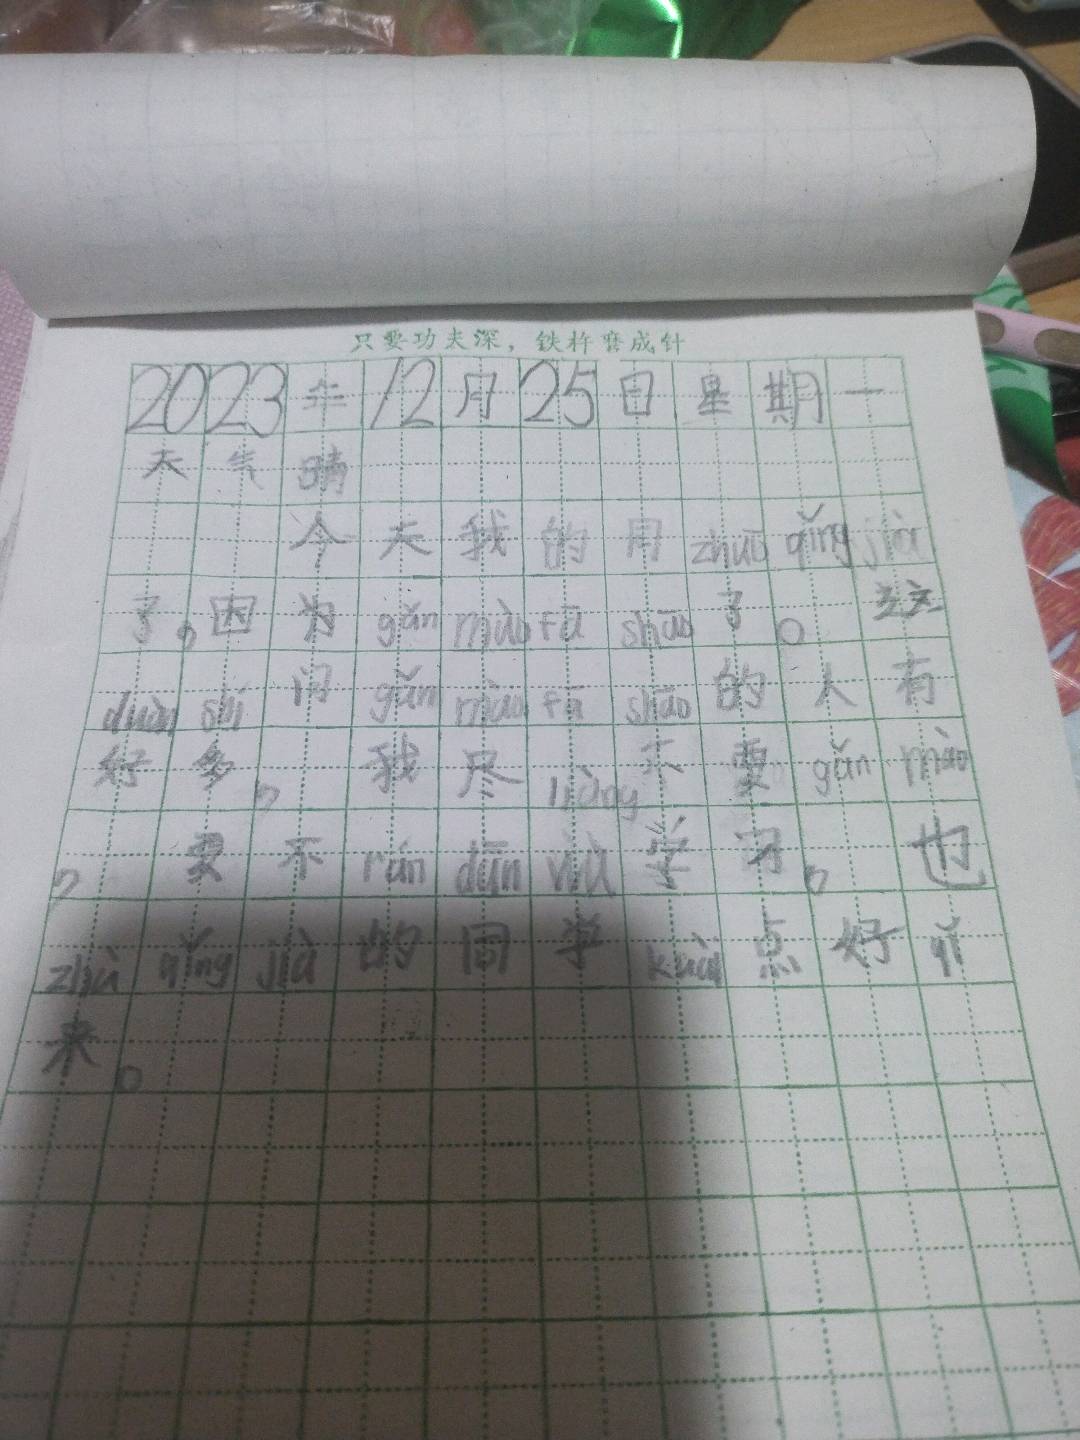 只要功夫深，铁杵磨成针
2023年12月25日星期一
天气晴
今天我的同zhuō qǐng jià
了，因为gǎn mào fā shāo了。这
duàn shí间gǎn mào fā shāo的人有
好多，我尽liàng不要gǎn mào
，要不rán dān wù学习，也
zhù qǐng jià的同学kuài点好qǐ
来。